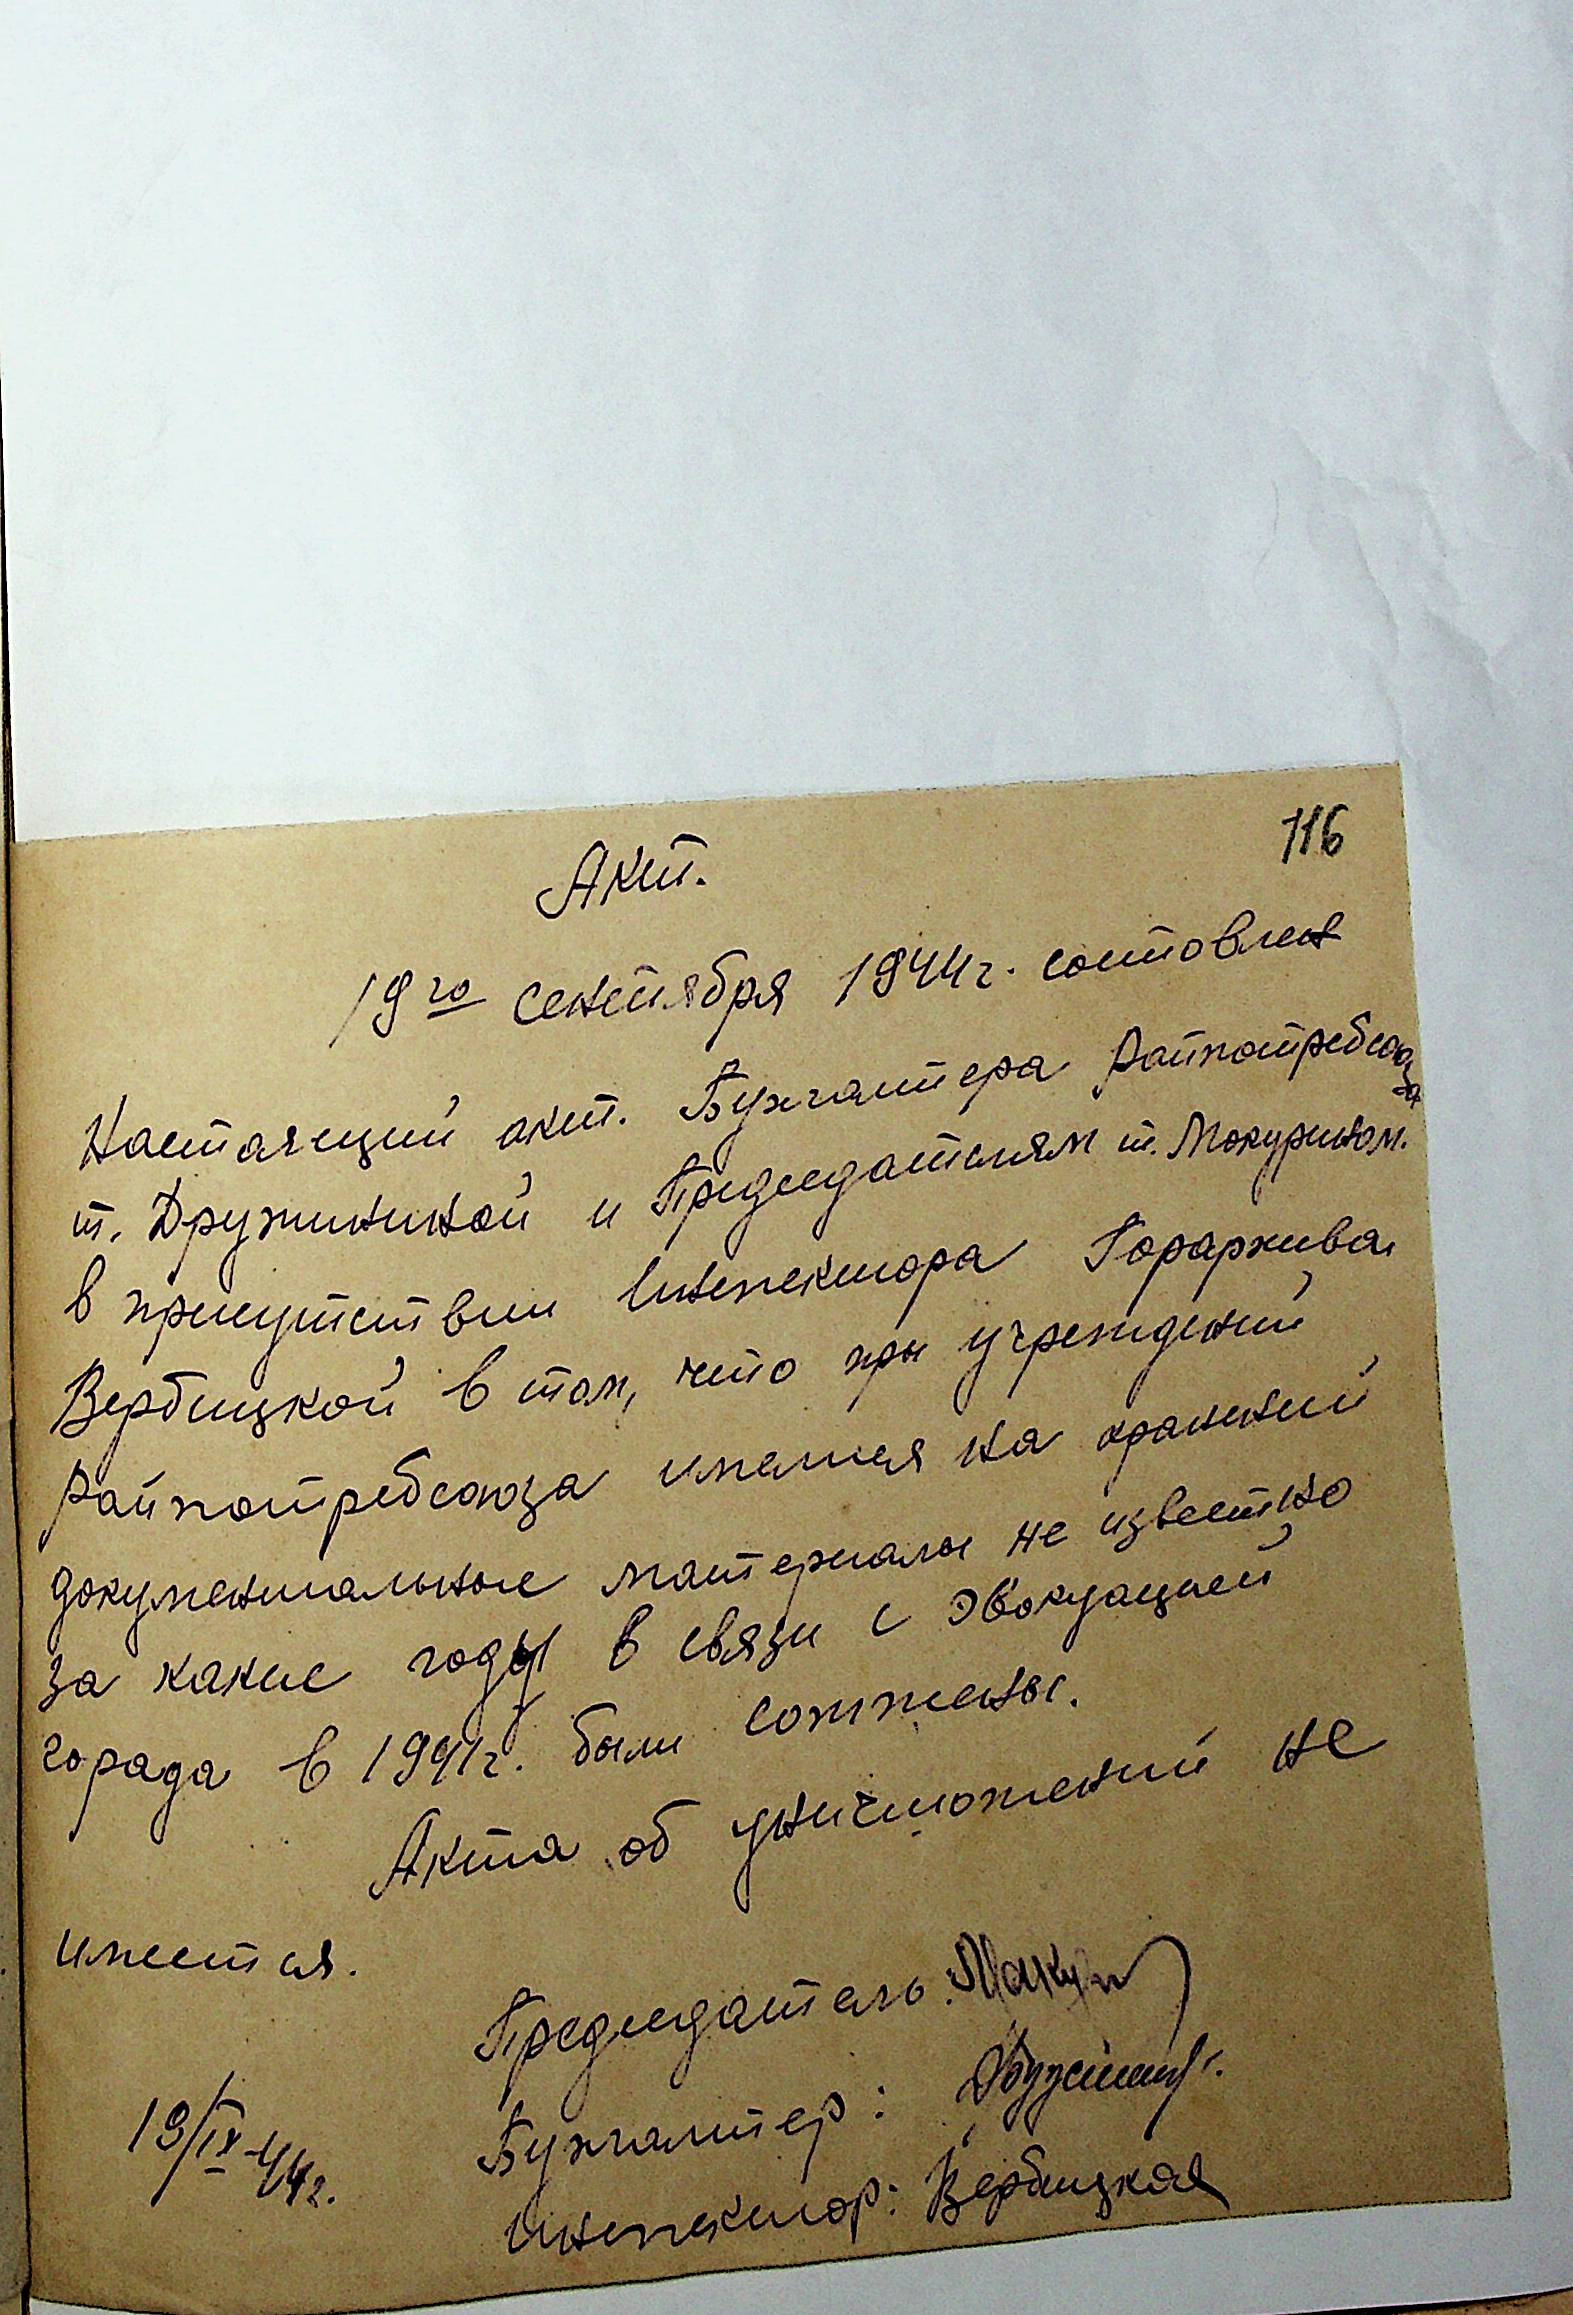 116
Акт.
19го сентября 1944г. состовлен
Настаящий акт. Бухгалтера Райпотребсоюза
т. Дружининой и Председателям т. Мокурином.
в присутствии Инспектора Горархива
Вербицкой в том, что при учреждений
Райпотребсоюза имелися на хранений
документальные материалы не известно
за какие годы в связи с эвокуацией
города в 1941г. были сожжены.
Акта об уничтожений не
имеется.
Председатель:
Бухгалтер:
19/IX-44г.
Инспектор: Вербицкая